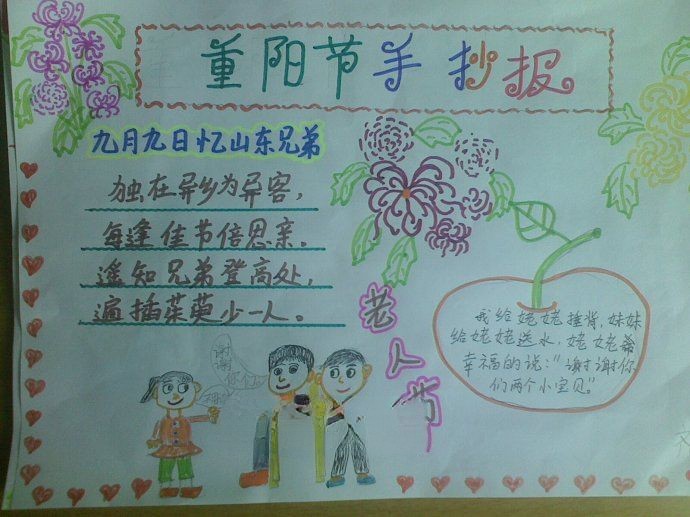 重阳节手抄报
九月九日忆山东兄弟
独在异乡为异客，
每逢佳节倍思亲。
遥知兄弟登高处，
遍插茱萸少一人。
老人节
我给姥姥捶背，妹妹
给姥姥送水，姥姥
幸福的说：“谢谢你
们两个小宝贝。”
谢谢
你们